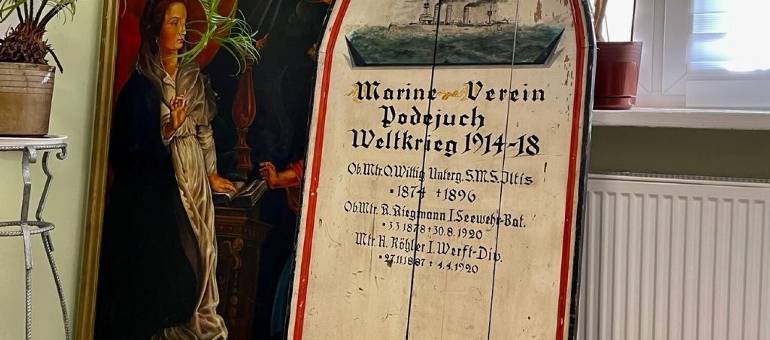 Marine-Verein
Podejuch
Weltkrieg 1914-18
Ob.Mtr.O.Wittig Unterg. S.M.S.Iltis
* 1874 † 1896
Ob.Mtr. R. Riegmann I.Seewehr-Bat.
* 3.3.1878 † 30.8.1920
Mtr. H. Röhler I. Werft-Div.
* 27.11.1887 † 4.4.1920